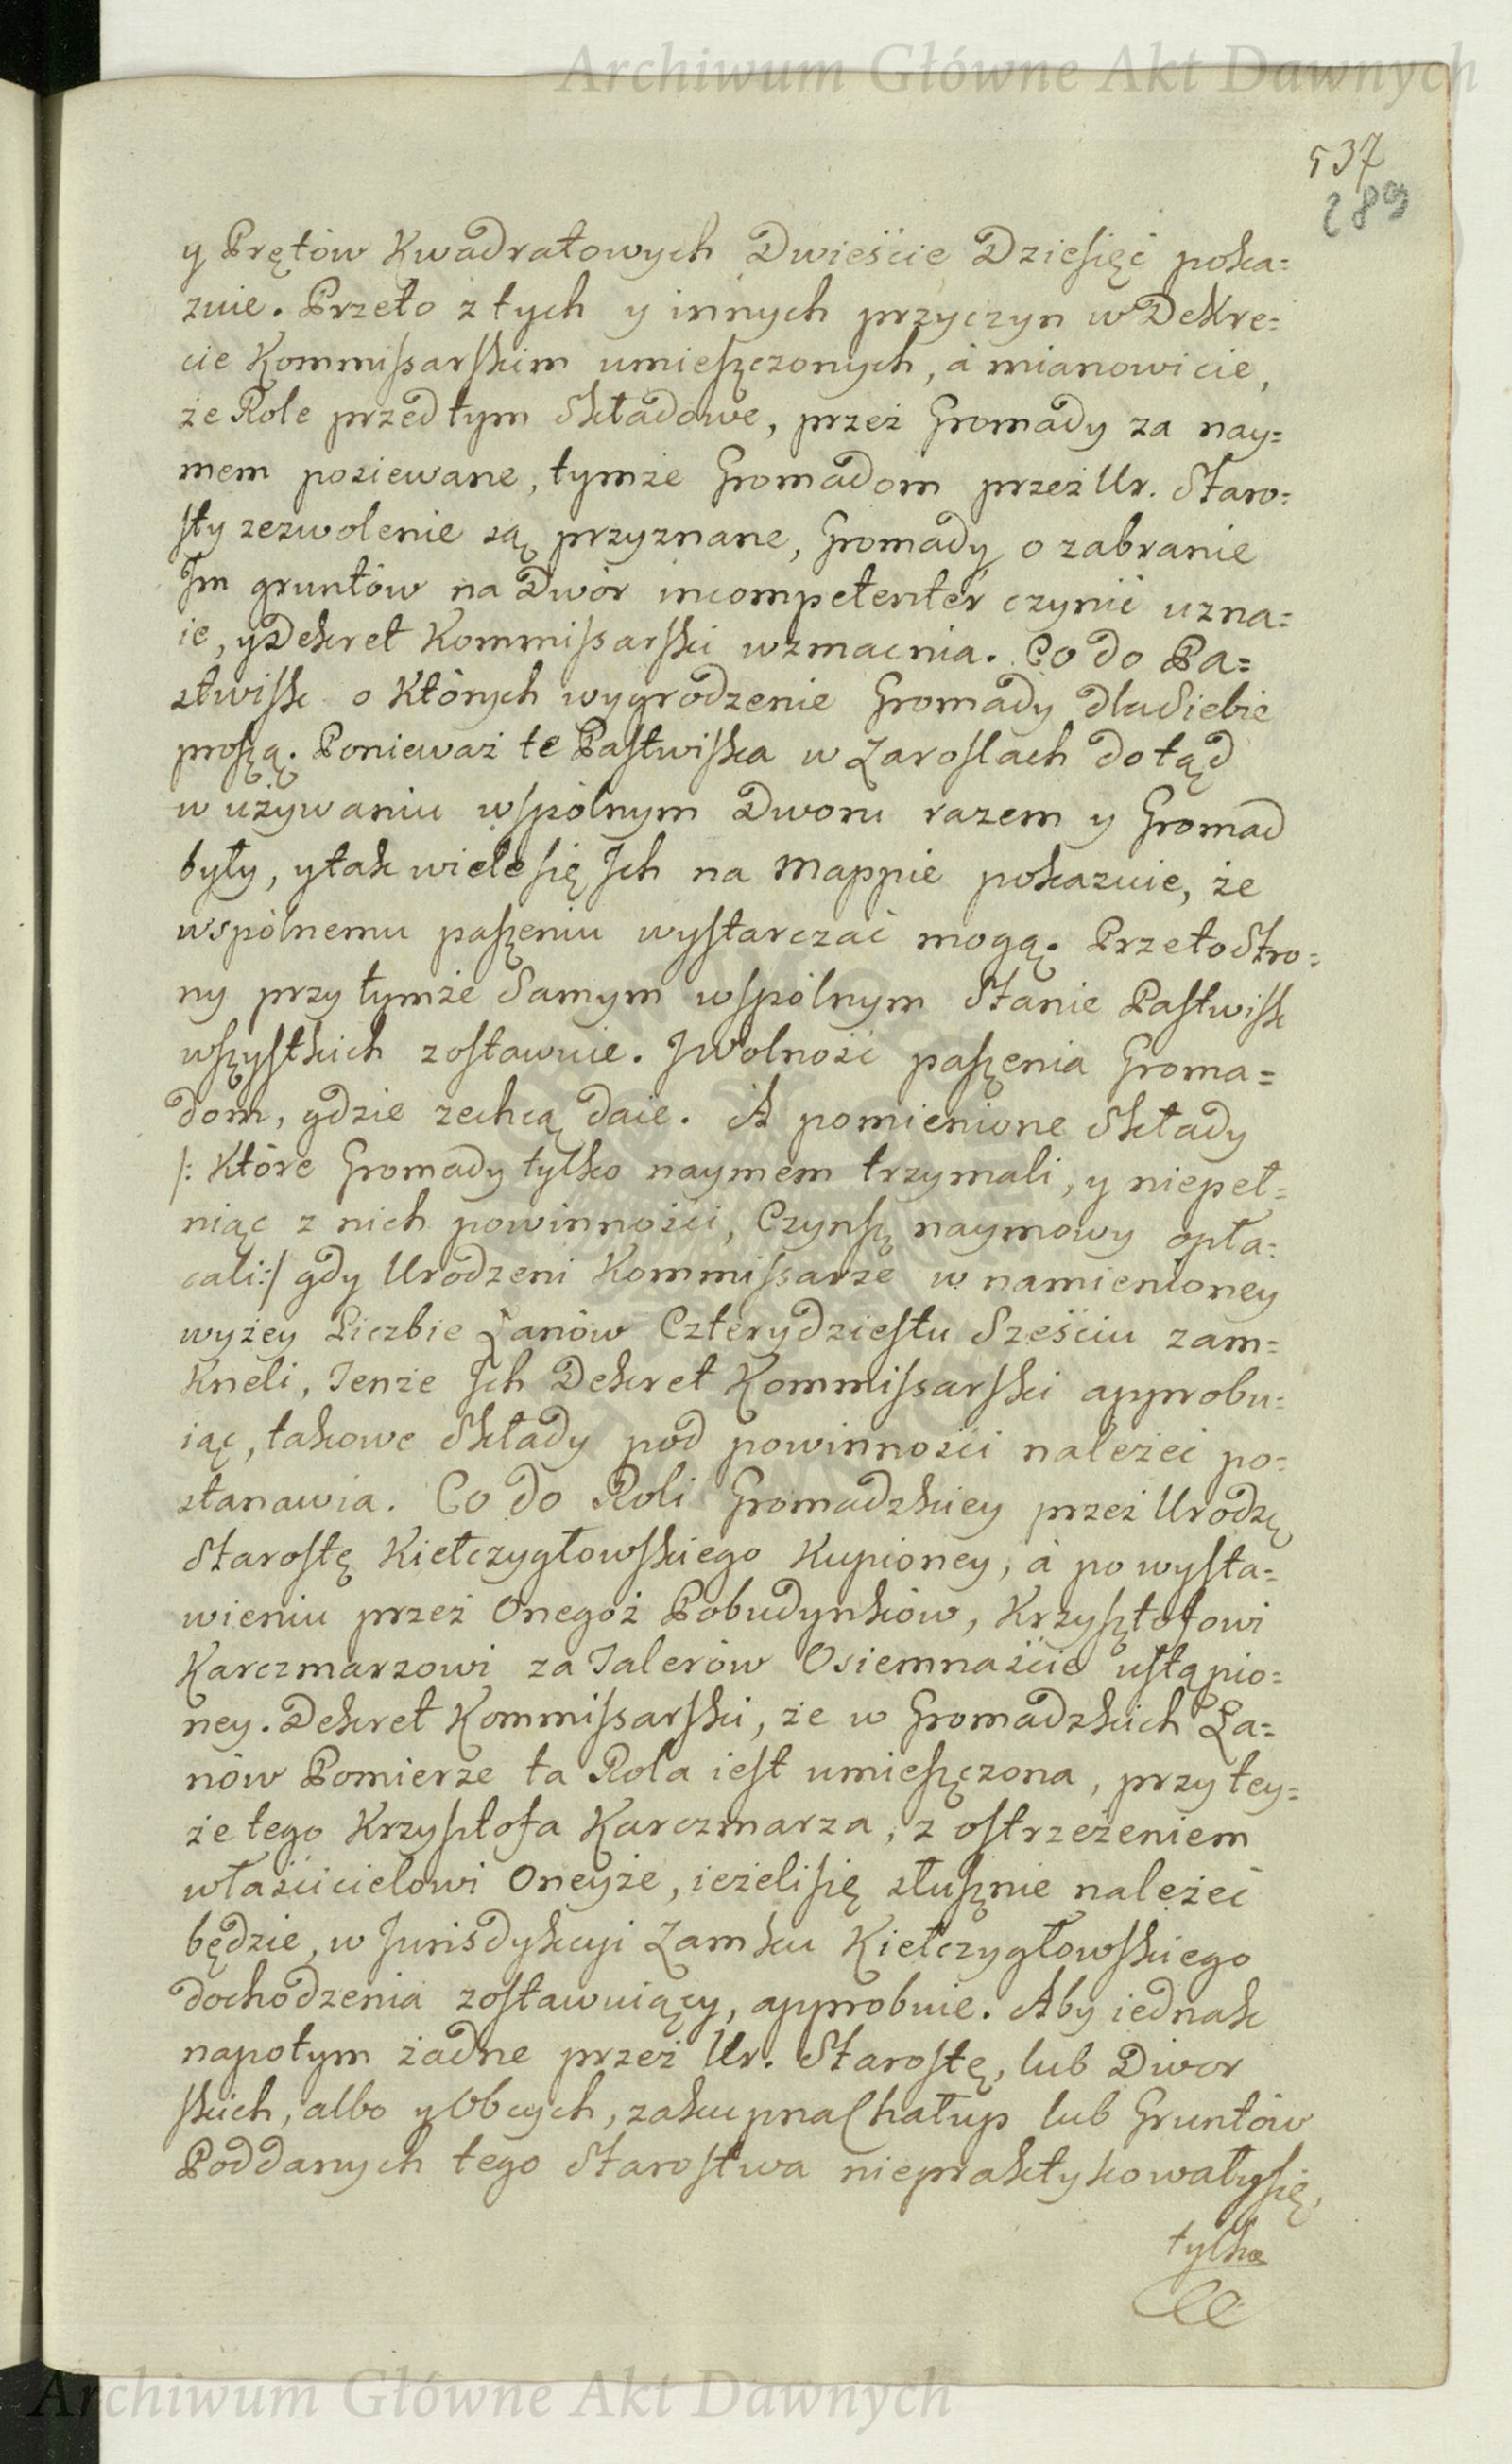 Archiwum Główne Akt Dawnych
537
289
y Prętów Kwadratowych Dwieście Dziesięć poka=
zuie. Przeto z tych y innych przyczyn w Dekre=
cie Kommissarskim umieszczonych, á mianowicie,
że Role przed tym Składowe, przez Gromady za nay=
mem posiewane, tymże Gromadom przez Ur. Staro=
sty zezwolenie są przyznane, Gromady o zabranie
Im gruntów na Dwór incompetenter czynić uzna=
ie, y Dekret Kommissarski wzmacnia. Co do Pa=
stwisk o Których wygrodzenie Gromady dla Siebie
proszą. Ponieważ te Pastwiska w Zaroslach dotąd
w używaniu wspólnym Dworu razem y Gromad
były, y tak wiele się Ich na Mappie pokazuie, że
wspólnemu paszeniu wystarczać mogą. Przeto Stro=
ny przy tymże Samym wspólnym Stanie Pastwisk
wszystkich zostawuie. I Wolność paszenia Groma=
dom, gdzie zechcą daie. A pomienione Składy
/: Które Gromady tylko naymem trzymali, y niepeł=
niąc z nich powinności, Czynsz naymowy opła=
cali :/ gdy Urodzeni Kommissarze w namienioney
wyżey Liczbie Łanów Czterydziestu Sześciu zam=
Kneli, Tenże Ich Dekret Kommissarski approbu=
iąc, takowe Składy pod powinności należeć po=
stanawia. Co do Roli Gromadzkiey przez Urodzę
Starostę Kiełczygłowskiego Kupioney, á po wysta=
wieniu przez Onegoż Pobudynków, Krzysztofowi
Karczmarzowi za Talerów Osiemnaście ustąpio=
ney. Dekret Kommissarski, że w Gromadzkich Ła=
nów Pomierze ta Rola iest umieszczona, przy tey=
że tego Krzysztofa Karczmarza, z ostrzeżeniem
właścicielowi Oneyże, ieżeli się słusznie należeć
będzie, w Jurisdykcyi Zamku Kiełczygłowskiego
dochodzenia zostawuiący, approbuie. Aby iednak
napotym żadne przez Ur. Starostę, lub Dwor
skich, albo y Obcych, zakupna Chałup lub Gruntów
Poddanych tego Starostwa niepraktykowały się,
tylko
Archiwum Główne Akt Dawnych